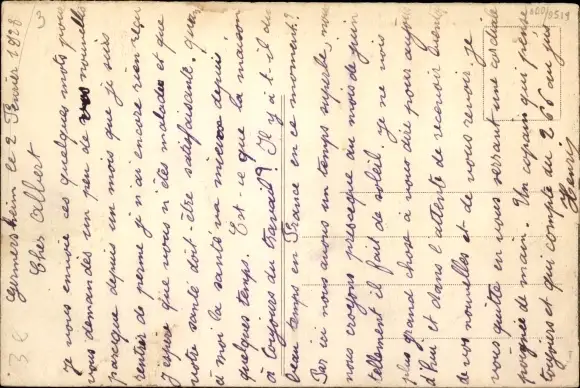 Germersheim le 2 Février 1928
Cher Albert
Je vous envoie ces quelques mots pour
vous demandés un peu de vos nouvelle
presque depuis un mois que je suis
rentrer de perme je n'ai encore rien reçu
J'espère que vous n'êtes malade et que
votre santé doit-être satisfaisante. quand
à moi la santé va mieux depuis
quelques temps. Est-ce que la maison
à toujours du travail? Il y à t-il du
beau temps en France en ce moment?
Par ici nous avons un temps superbe, nous
nous croyons presque au mois de juin
tellement il fait de soleil. je ne vois
plus grand chose à vous dire pour aujour
d'hui et dans l'attente de recevoir bientôt
de vos nouvelles et de vous revoir. je
vous quitte en vous serrant une cordiale
poignée de main. Un copain qui pense
toujours et qui compte du 266 au jus
Henri